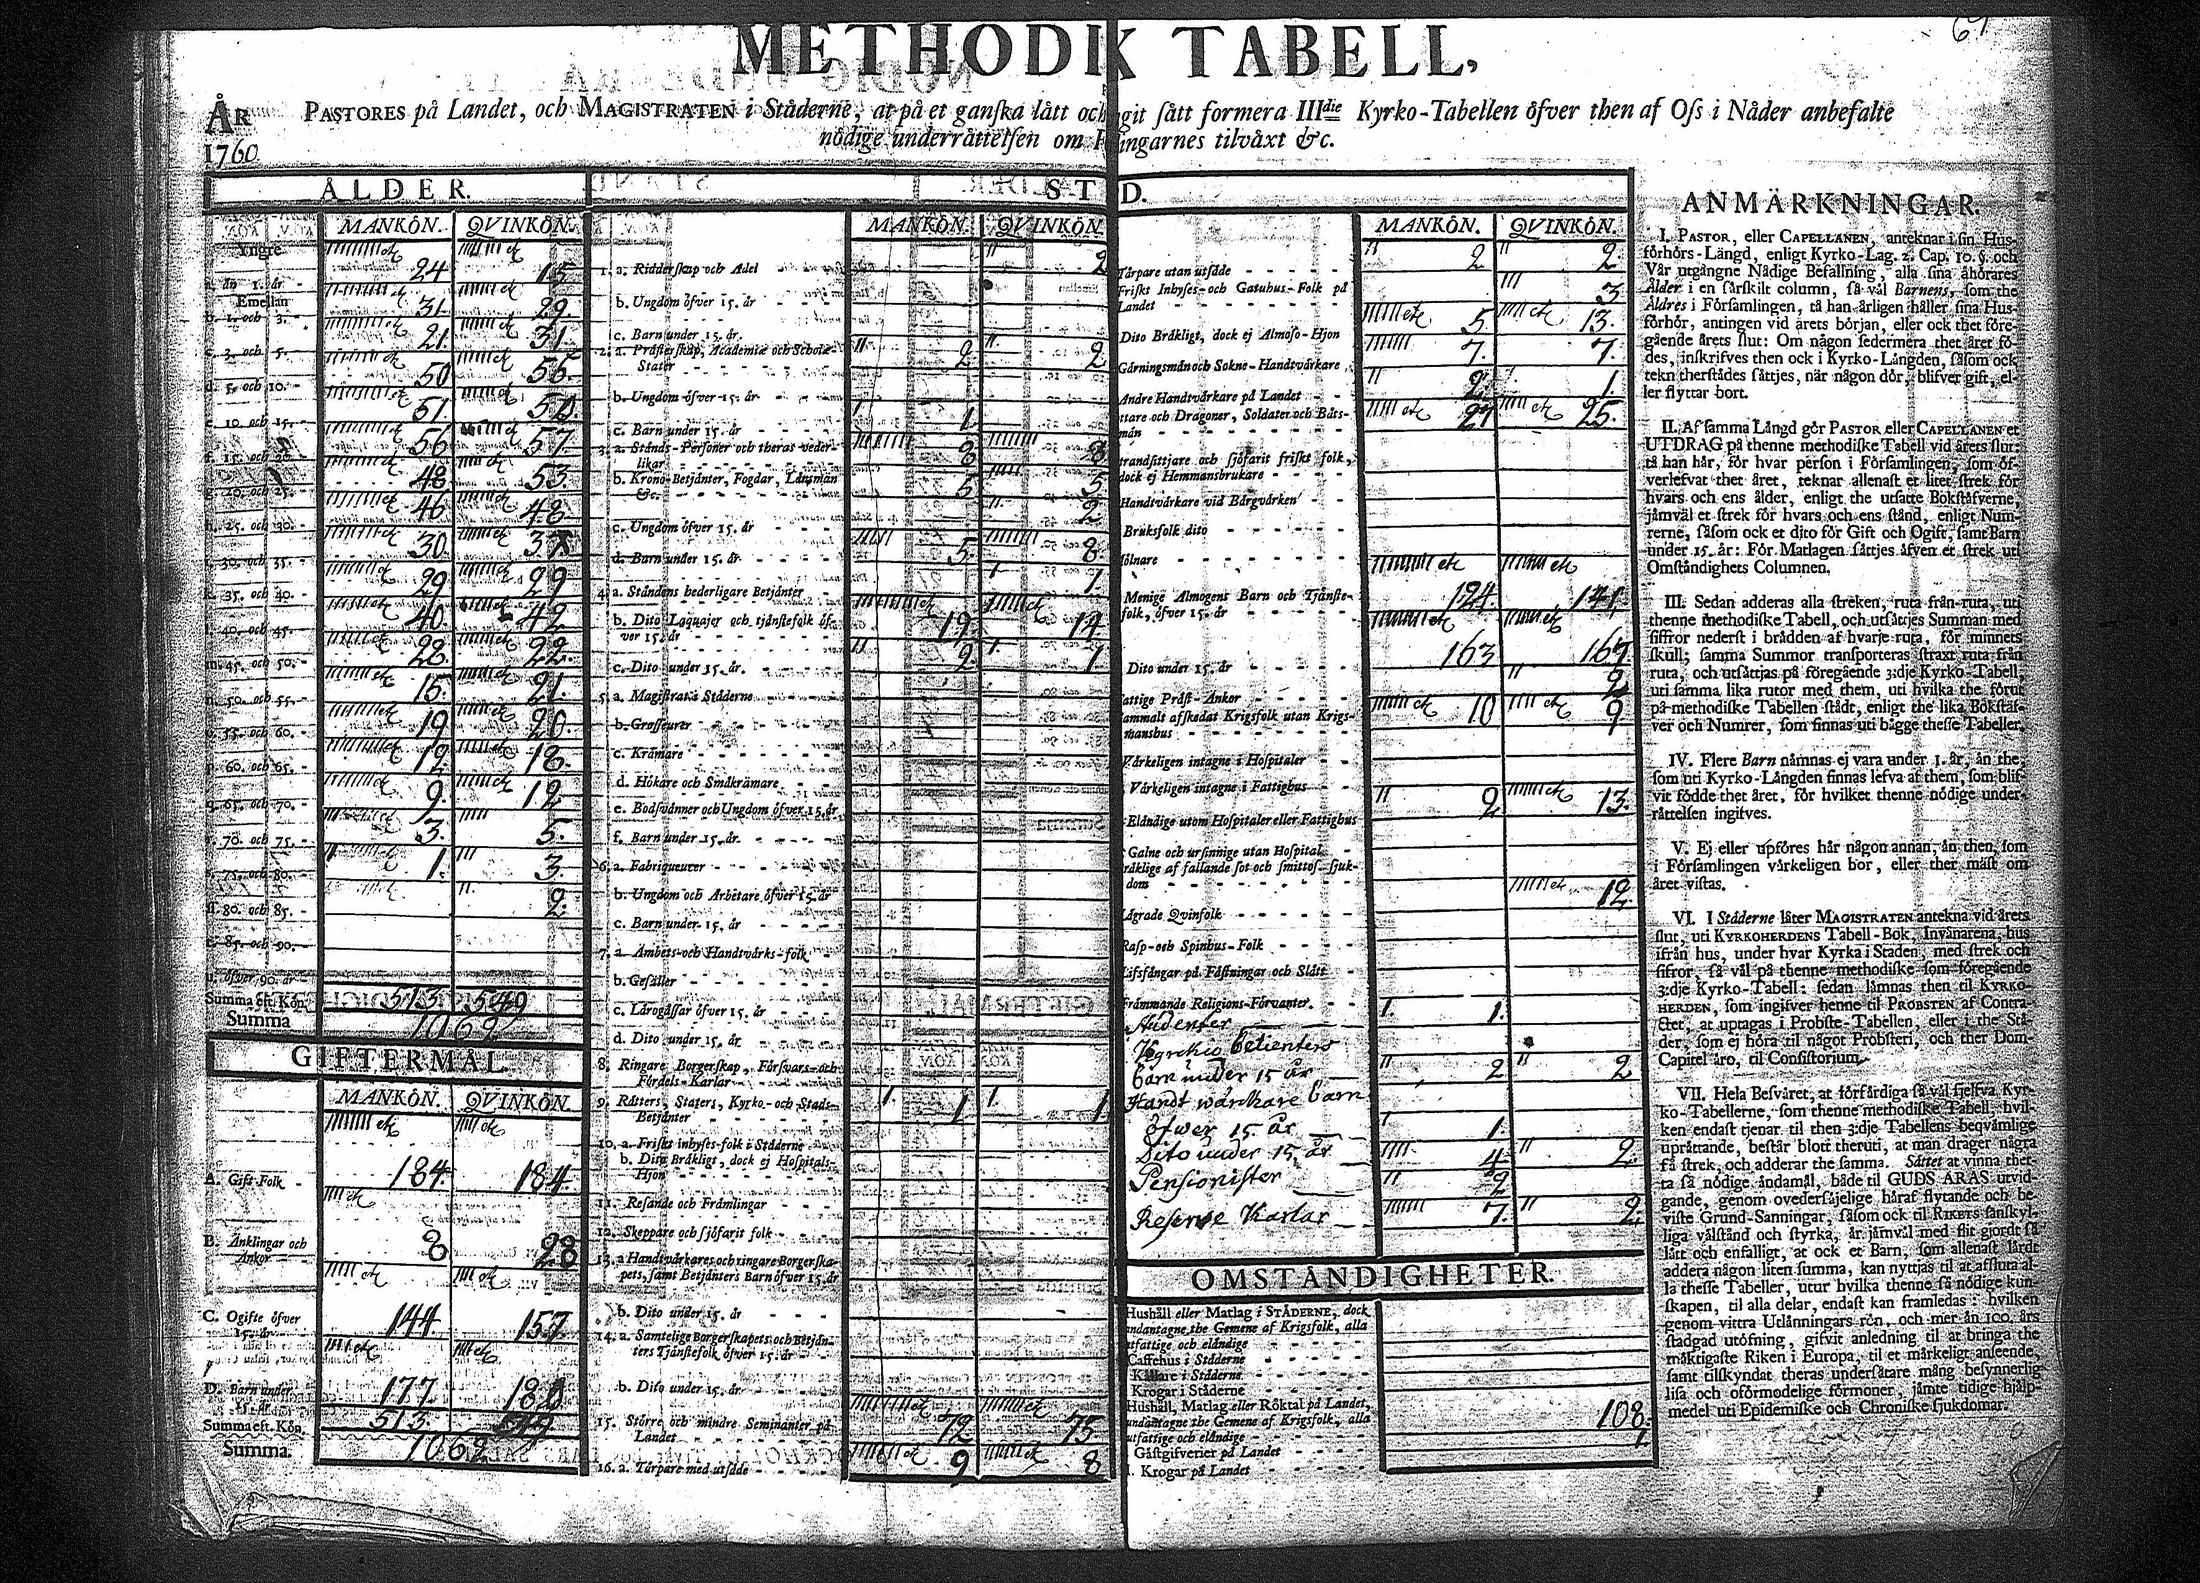 67
METHODIK TABELL,
ÅR 1760.
PASTORES på Landet, och MAGISTRATEN i Städerne, at på et ganska lätt och git sätt formera IIIdie Kyrko-Tabellen öfver then af Oss i Nåder anbefalte
nödige underrättelsen om ingarnes tilväxt &c.
ÅLDER.
MANKÖN. QVINKÖN.
Yngre
än 1. år - 24 15
Emellan
b. 1. och 3. 31. 29.
c. 3. och 5. 21. 31.
d. 5. och 10. 50 55.
e. 10. och 15. 51. 50.
f. 15. och 20. 56 57.
g. 20. och 25. 48 53.
h. 25. och 30. 46 48
30. och 35. 30. 37
k. 35. och 40. 29 29
l. 40. och 45. 40. 42
m. 45. och 50. 28. 22.
n. 50. och 55. 15. 21.
o. 55. och 60. 19 20.
p. 60. och 65. 12. 18.
q. 65. och 70. 9. 12
r. 70. och 75. 3. 5.
75. och 80. 1. 3.
80. och 85. 2
t. 85. och 90.
u. öfver 90. år
Summa eft. Kön. 513. 549
Summa 1062
GIFTERMÅL.
MANKÖN. QVINKÖN.
A. Gift Folk - 184. 184.
B. Änklingar och
Änkor 8 28
C. Ogifte öfver
15. år 144 157.
D. Barn under
15. år 177. 180
Summa eft. Kön. 513. 549.
Summa. 1062
ST D.
MANKÖN. QVINKÖN.
1. a. Ridderskap och Adel 2
b. Ungdom öfver 15. år
c. Barn under 15. år.
2. a. Prästerskap, Academiæ och Scholæ-
Stater 2 2
b. Ungdom öfver 15. år
c. Barn under 15. år 1.
3. a. Stånds-Personer och theras veder-
likar 8 8
b. Krono-Betjänter, Fogdar, Länsmän
&c. 5 5
c. Ungdom öfver 15. år 2
d. Barn under 15. år 5. 8
4. a. Ståndens hederligare Betjänter 1.
b. Dito Laquajer och tjänstefolk öf-
ver 15. år 19. 14
c. Dito under 15. år. 2. 1.
5. a. Magistrat i Städerne
b. Grosseurer
c. Krämare
d. Hökare och Småkrämare
e. Bodsvänner och Ungdom öfver 15. år
f. Barn under 15. år
6. a. Fabriqueurer
b. Ungdom och Arbetare öfver 15. år
c. Barn under 15. år
7. a. Ämbets- och Handtvärks-folk
b. Gesäller
c. Lärogåssar öfver 15. år
d. Dito under 15. år
8. Ringare Borgerskap, Försvars- och
Fördels-Karlar
9. Rätters, Staters, Kyrko- och Stads-
Betjänter 1 1
10. a. Friskt inhyses-folk i Städerne
b. Dito Bräkligt, dock ej Hospitals-
Hjon
11. Resande och Främlingar
12. Skeppare och sjöfarit folk
13. a Handtvärkares och ringare Borgerska-
pets, samt Betjänters Barn öfver 15. år
b. Dito under 15. år
14. a. Samtelige Borgerskapets och Betjän-
ters Tjänstefolk öfver 15. år
b. Dito under 15. år
15. Större och mindre Hemmanter på
Landet 72 75.
16. a. Torpare med utsäde 9 8
MANKÖN. QVINKÖN.
Torpare utan utsäde 2 2.
Friskt Inhyses- och Gatuhus-Folk på
Landet 3
Dito Bräkligt, dock ej Almoso-Hjon 5. 13.
Gärningsmän och Sokne-Handtvärkare 7. 7.
Andre Handtvärkare på Landet 2. 1.
ttare och Dragoner, Soldater och Båts-
män 27 25.
trandsittjare och sjöfarit friskt folk,
dock ej Hemmansbrukare
Handtvärkare vid Bärgvärken
Bruksfolk dito
ölnare
Menige Allmogens Barn och Tjänste-
folk, öfver 15. år 124. 141.
Dito under 15. år 163 165.
attige Präst-Änkor 2
ammalt afskedat Krigsfolk utan Krigs-
manshus 10 9.
Värkeligen intagne i Hospitaler
Värkeligen intagne i Fattighus
Eländige utom Hospitaler eller Fattighus 2 13.
Galne och ursinnige utan Hospital
räklige af fallande sot och smittos. sjuk-
dom
ägrade Qvinfolk 12.
Rasp- och Spinhus-Folk
Lifsfångar på Fästningar och Slått
Främmande Religions-Förvanter
Studenter 1.
Kyrckio betienters
barn under 15 år 2 2
Handtwärckare barn
öfwer 15 år 1.
Dito under 15. år 4 2.
Pensionister 2
Reserve Karlar 7. 2
OMSTÄNDIGHETER.
Hushåll eller Matlag i STÄDERNE, dock
undantagne the Gemene af Krigsfolk, alla
utfattige och eländige
Caffehus i Städerne
Källare i Städerne
Krogar i Städerne
Hushåll, Matlag eller Röktal på Landet,
undantagne the Gemene af Krigsfolk, alla
utfattige och eländige 108.
Gästgifverier på Landet 1.
Krogar på Landet
ANMÄRKNINGAR.
I. PASTOR, eller CAPELLANEN, anteknar i sin Hus-
förhörs-Längd, enligt Kyrko-Lag. 2. Cap. 10. §. och
Vår utgångne Nådige Befallning, alla sina åhörares
Ålder i en särskilt column, så väl Barnens, som the
Äldres i Församlingen, tå han årligen håller sina Hus-
förhör, antingen vid årets början, eller ock thet före-
gående årets slut: Om någon sedermera thet året fö-
des, inskrifves then ock i Kyrko-Längden, såsom ock
tekn therstådes sättjes, när någon dör, blifver gift, el-
ler flyttar bort.
II. Af samma Längd gör PASTOR eller CAPELLANEN et
UTDRAG på thenne methodiske Tabell vid årets slut:
tå han här, för hvar person i Församlingen, som öf-
verlefvat thet året, teknar allenast et litet strek för
hvars och ens ålder, enligt the utsatte Bokstäfverne,
jämväl et strek för hvars och ens stånd, enligt Num-
rerne, såsom ock et dito för Gift och Ogift, samt Barn
under 15. år: För Matlagen sättjes äfven et strek uti
Omständighets Columnen.
III. Sedan adderas alla streken, ruta från ruta, uti
thenne methodiske Tabell, och utsättjes Summan med
siffror nederst i brädden af hvarje ruta, för minnets
skull; samma Summor transporteras straxt ruta från
ruta, och utsättjas på föregående 3:dje Kyrko-Tabell,
uti samma lika rutor med them, uti hvilka the förut
på methodiske Tabellen städt, enligt the lika Bokstäf-
ver och Numrer, som finnas uti bägge thesse Tabeller.
IV. Flere Barn nämnas ej vara under 1. år, än the,
som uti Kyrko-Längden finnas lefva af them, som blif-
vit födde thet året, för hvilket thenne nödige under-
rättelsen ingifves.
V. Ej eller upföres här någon annan, än then, som
i Församlingen värkeligen bor, eller ther mäst om
året vistas.
VI. I Städerne låter MAGISTRATEN antekna vid årets
slut, uti KYRKOHERDENS Tabell-Bok, Invånarena, hus
ifrån hus, under hvar Kyrka i Staden, med strek och
siffror, så väl på thenne methodiske som föregående
3:dje Kyrko-Tabell: sedan lämnas then til KYRKO-
HERDEN, som ingifver henne til PROBSTEN af Contra-
ctet, at uptagas i Probste-Tabellen, eller i the Stä-
der, som ej höra til något Probsteri, och ther Dom-
Capitel äro, til Consistorium.
VII. Hela Besväret, at förfärdiga så väl sjelfva Kyr-
ko-Tabellerne, som thenne methodiske Tabell, hvil-
ken endast tjenar til then 3:dje Tabellens beqvämlige
uprättande, består blott theruti, at man drager några
få strek, och adderar the samma. Sättet at vinna thet-
ta så nödige ändamål, både til GUDS ÄRAS utvid-
gande, genom ovedersäjelige häraf flytande och be-
viste Grund-Sanningar, såsom ock til RIKETS sanskyl-
liga välstånd och styrka, är jämväl med flit gjordt så
lätt och enfalligt, at ock et Barn, som allenast lärdt
addera någon liten summa, kan nyttjas til at afsluta al-
la thesse Tabeller, utur hvilka thenne så nödige kun-
skapen, til alla delar, endast kan framledas: hvilken
genom vittra Utlänningars rön, och mer än 100. års
stadgad utöfning, gifvit anledning til at bringa the
mäktigaste Riken i Europa, til et märkeligt anseende,
samt tilskyndat theras undersåtare mång besynnerlig
lisa och oförmodelige förmoner, jämte tidige hjälp-
medel uti Epidemiske och Chroniske sjukdomar.